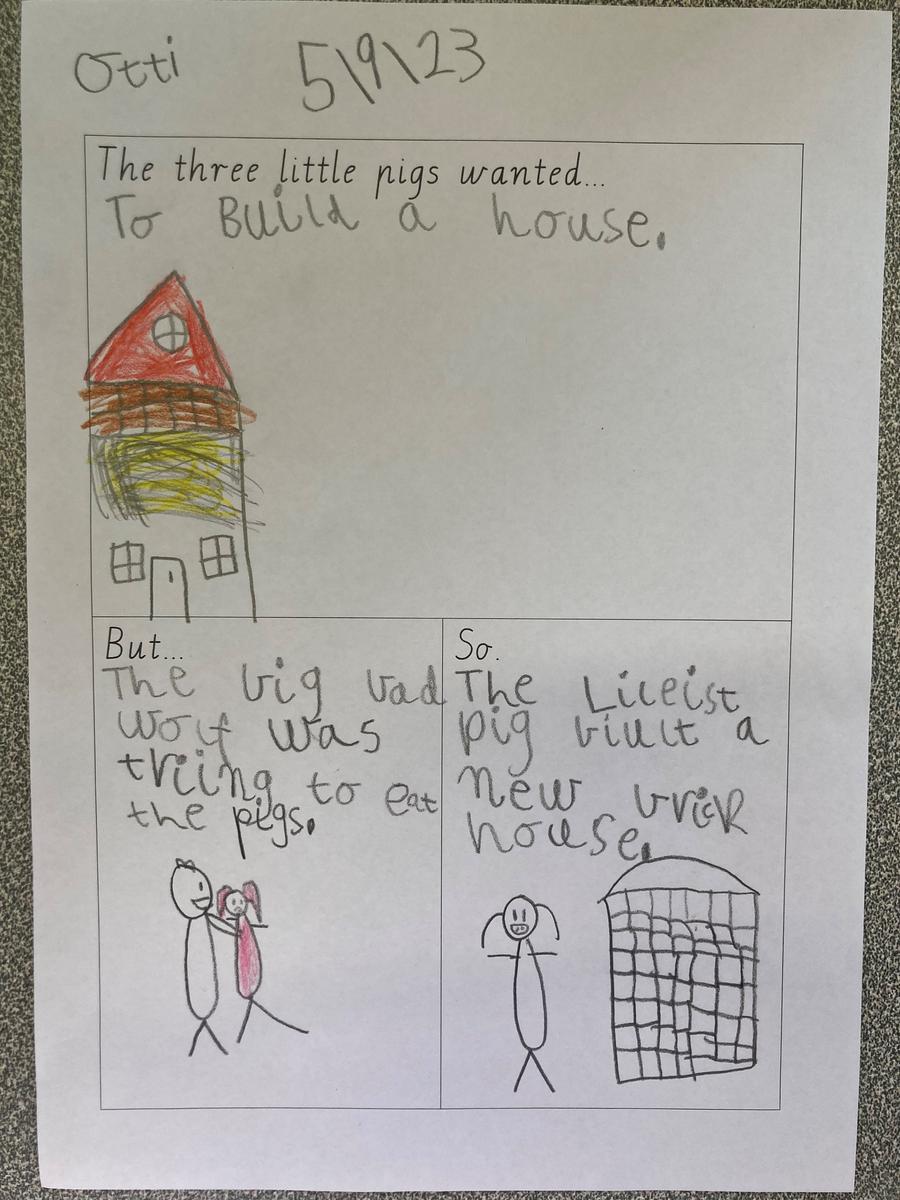 Otti 5\9\23
The three little pigs wanted...
To Build a house.
But...
The big bad
wolf was
triing to eat
the pigs.
So.
The Liteist
pig biult a
new brick
house.